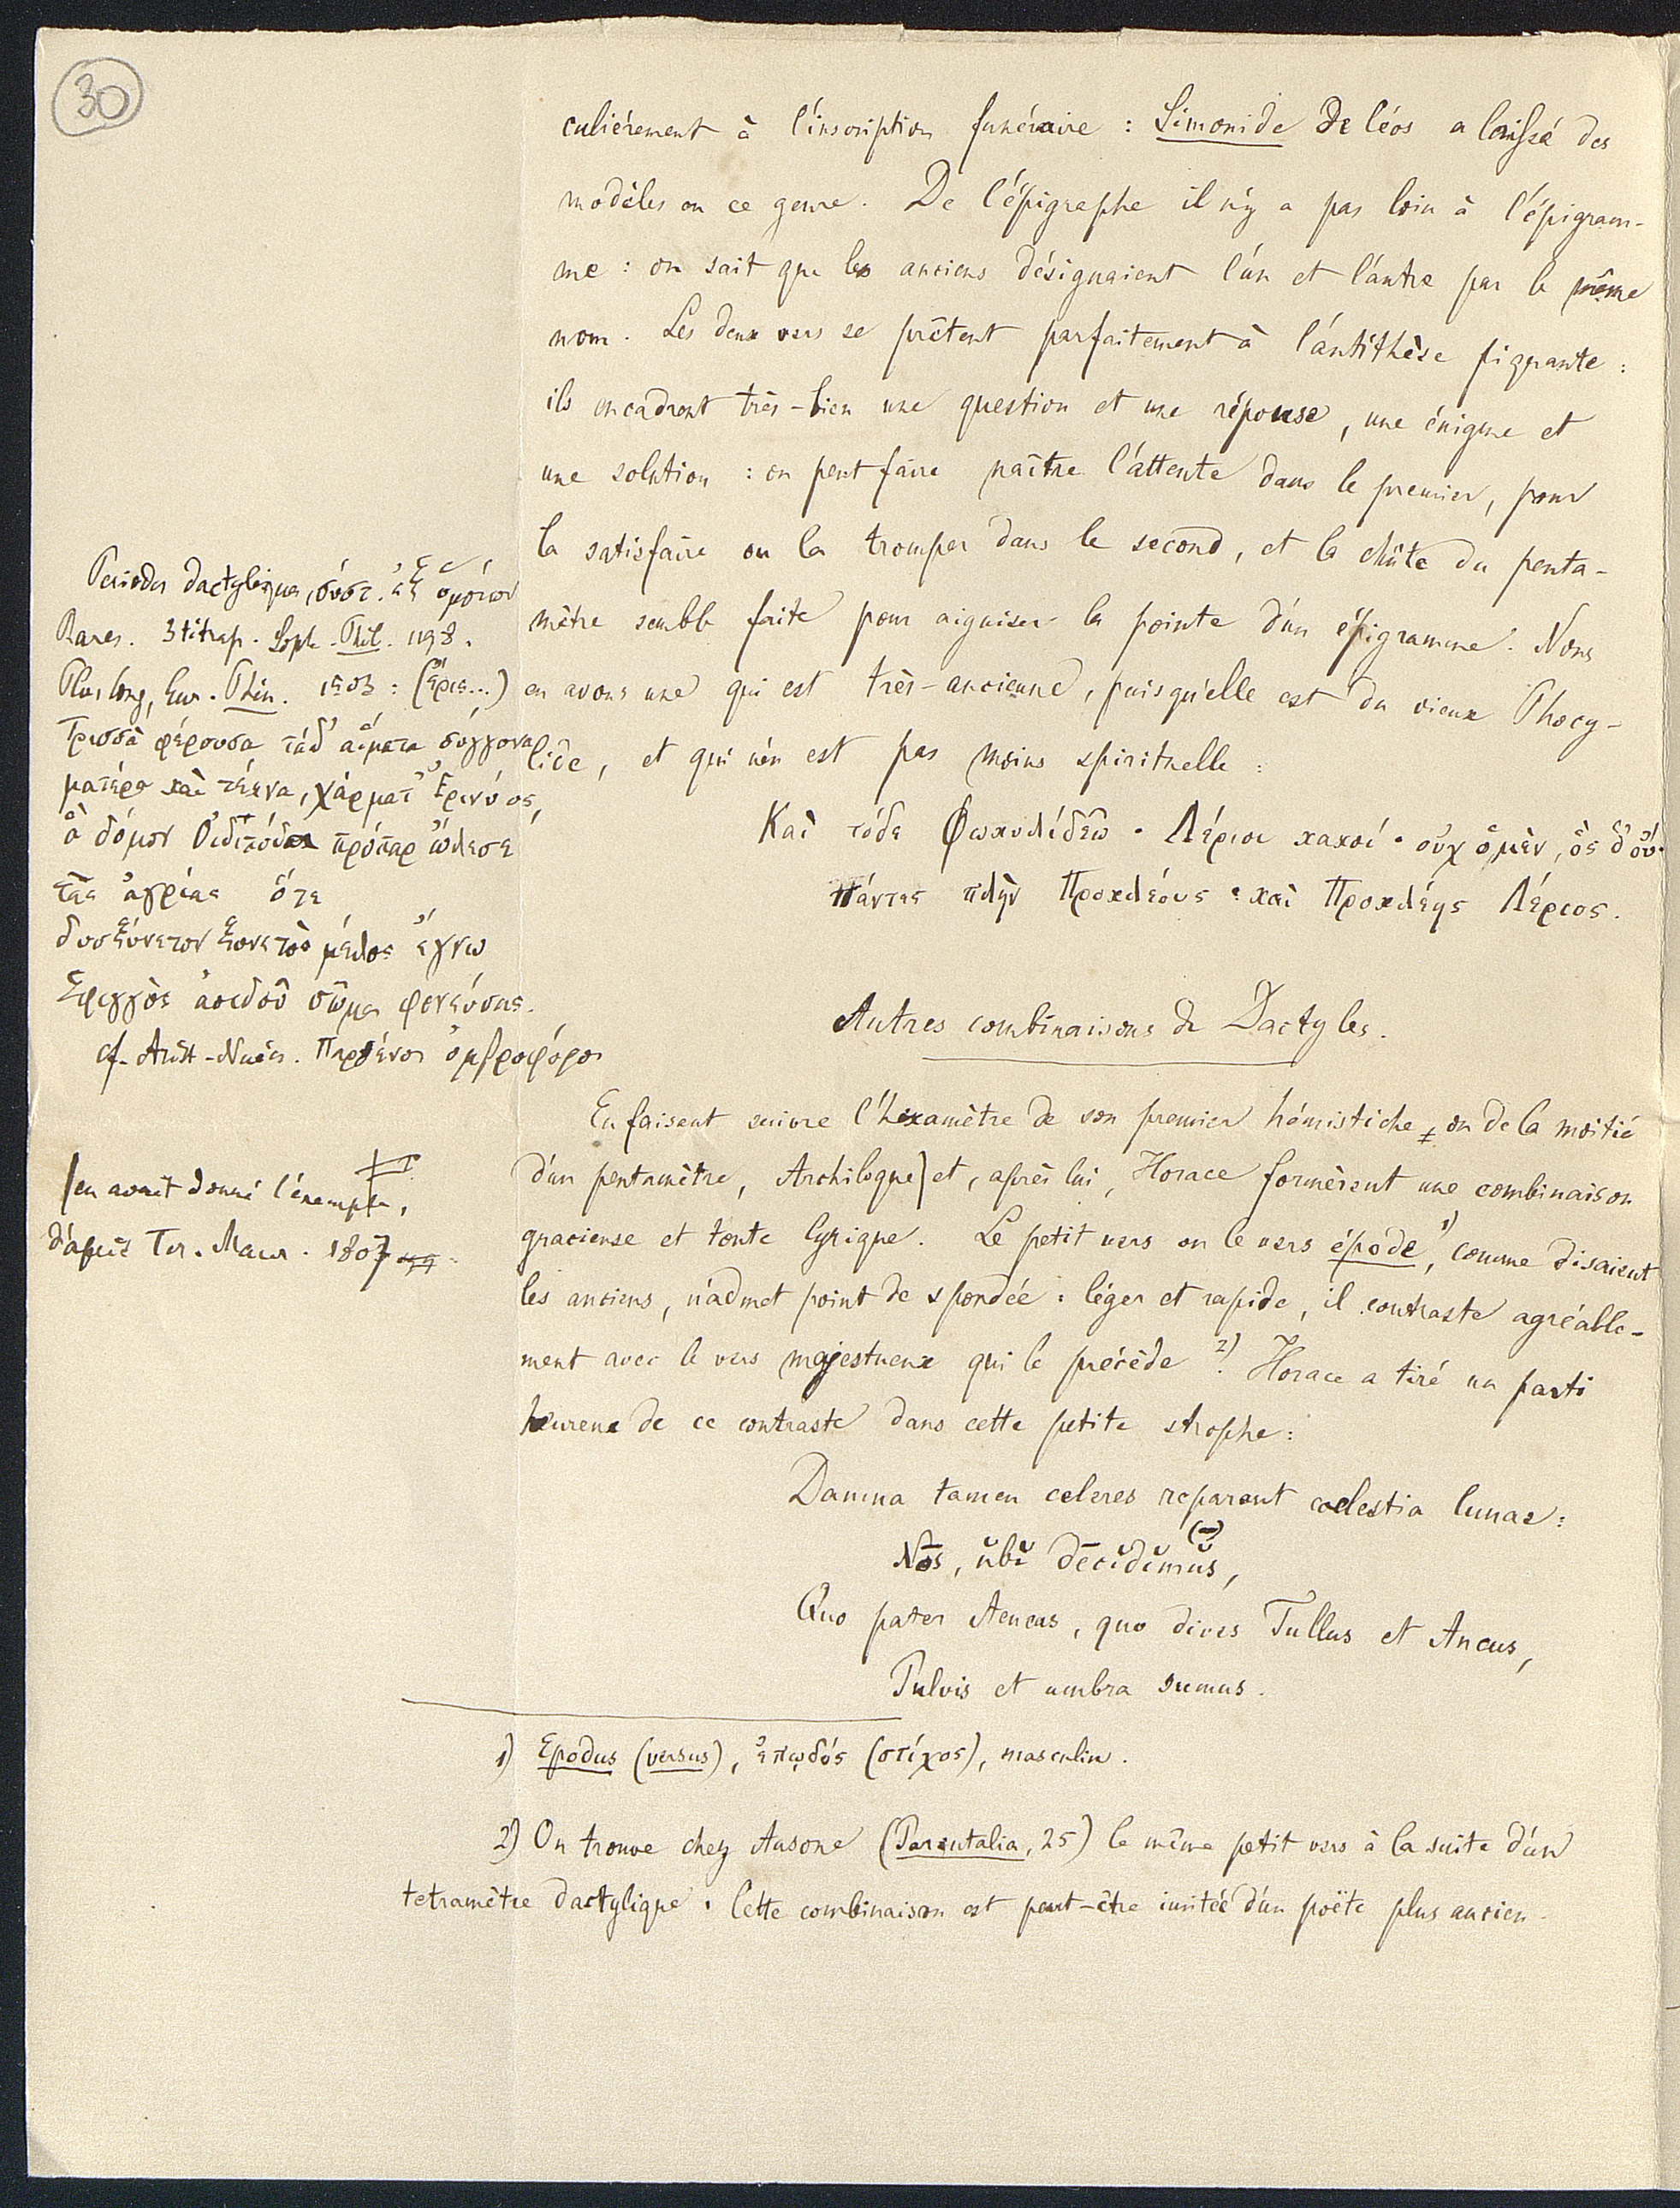 30
culièrement à l'inscription funéraire : Simonide de Céos a laissé des
modèles en ce genre. De l'épigraphe il n'y a pas loin à l'épigram-
me : on sait que les anciens désignaient l'un et l'autre par le même
nom. Les deux vers se prêtent parfaitement à l'antithèse piquante :
ils encadrent très-bien une question et une réponse, une énigme et
une solution : on peut faire naître l'attente dans le premier, pour
la satisfaire ou la tromper dans le second, et la chûte du penta-
mètre semble faite pour aiguiser la pointe d'un épigramme. Nous
en avons une qui est très-ancienne, puisqu'elle est du vieux Phocy-
lide, et qui n'en est pas moins spirituelle :
Καὶ τόδε Φωκυλίδεω· Λέριοι κακοί· οὐχ ὁ μὲν, ὃς δ' οὔ·
Πάντες πλὴν Προκλέους· καὶ Προκλέης Λέριος.
Périodes dactyliques, σύστ. ἐξ ὁμοίων
Rares. 3 tétrap. Soph. Phil. 1198.
Plus long, Eur. Phén. 1503 : (ἔρις...)
Τρισσὰ φέρουσα τάδ' αἵματα σύγγονα
ματέρα καὶ τέκνα, χάρματ' Ἐρινύος,
ἃ δόμον Οἰδιπόδα πρόπαρ ὤλεσε
τᾶς ἀγρίας ὅτε
δυσξύνετον ξυνετὸς μέλος ἔγνω
Σφιγγὸς ἀοιδοῦ σῶμα φονεύσας.
cf. Arist. Nuées. Παρθένοι ὀμβροφόροι
Autres combinaisons de Dactyles.
En faisant suivre l'hexamètre de son premier hémistiche ǂ ou de la moitié
d'un pentamètre, Archiloque) et, après lui, Horace formèrent une combinaison
gracieuse et toute lyrique. Le petit vers ou le vers épode 1), comme disaient
les anciens, n'admet point de spondée : léger et rapide, il contraste agréable-
ment avec le vers majestueux qui le précède 2). Horace a tiré un parti
heureux de ce contraste dans cette petite strophe :
ǂ
(en avait donné l'exemple,
d'après Ter. Maur. 1807
Damna tamen celeres reparant coelestia lunae :
Nōs, ŭbĭ dēcĭdĭmŭs,
Quo pater Aeneas, quo dives Tullus et Ancus,
Pulvis et umbra sumus.
1) Epodus (versus), ἐπῳδός (στίχος), masculin.
2) On trouve chez Ausone (Parentalia, 25) le même petit vers à la suite d'un
tetramètre dactylique. Cette combinaison est peut-être imitée d'un poëte plus ancien.